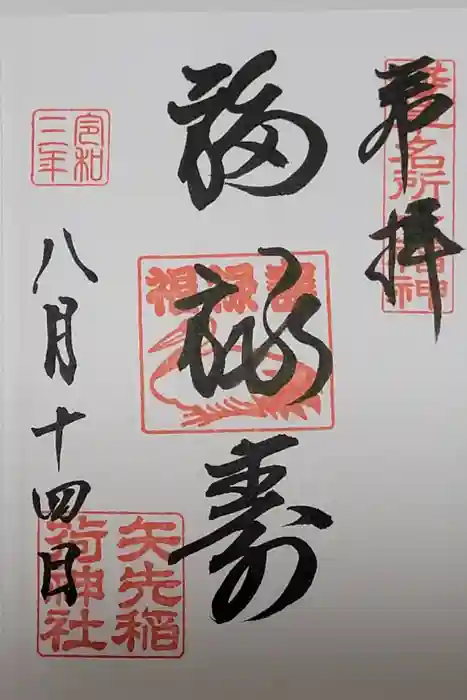 奉拝
浅草名所七福神
福禄寿
福禄寿
令和三年
八月十四日
矢先稲荷神社